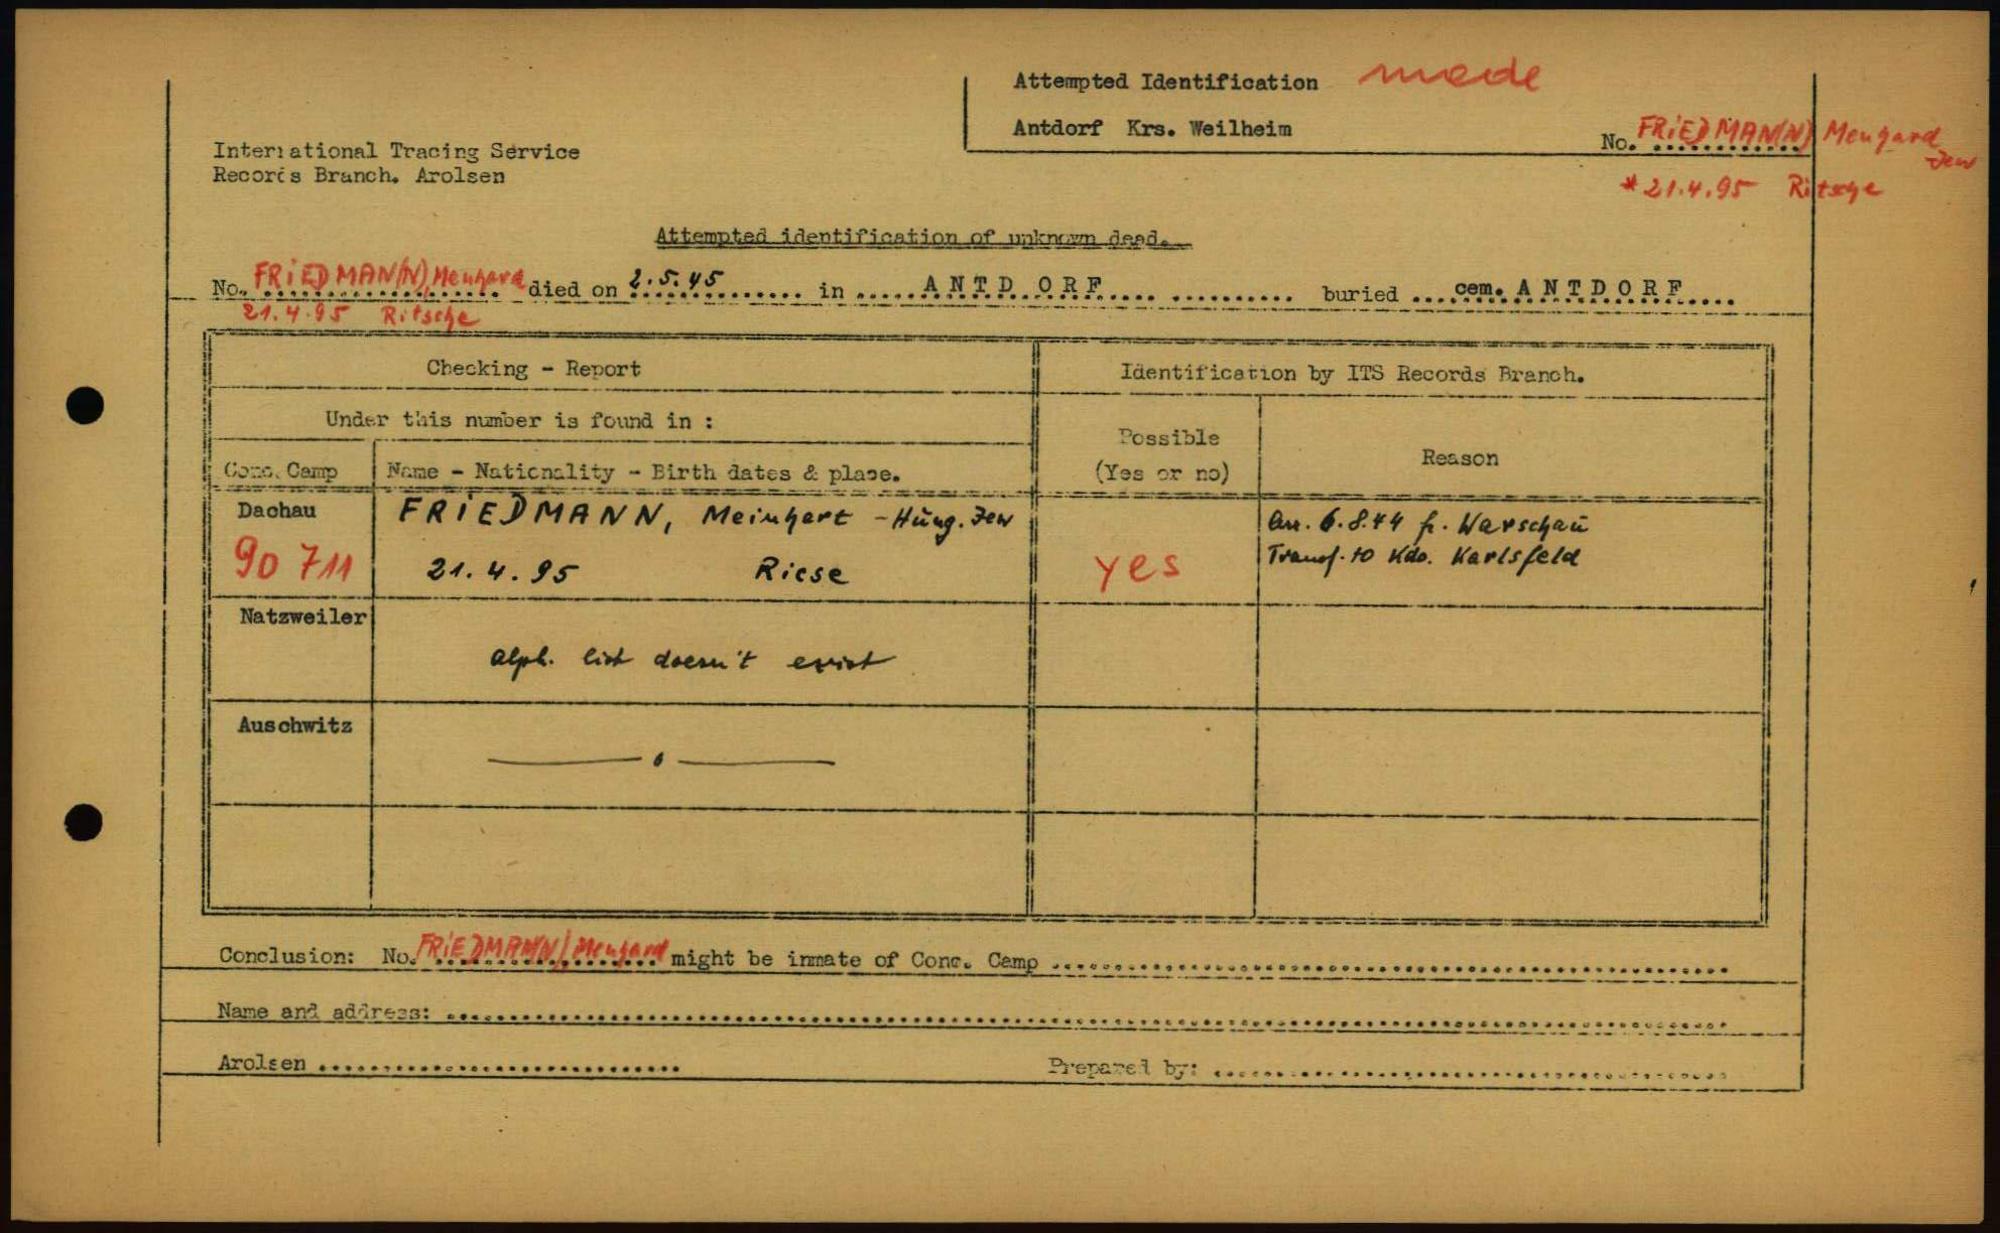 Attempted Identification made
Antdorf Krs. Weilheim
No. FRIEDMAN(N) Menhard
Jew
* 21.4.95 Ritsche
International Tracing Service
Records Branch. Arolsen
Attempted identification of unknown dead.
No. FRIEDMAN(N), Menhard died on 2.5.45 in ANTDORF buried cem. ANTDORF
21.4.95 Ritsche
Checking - Report
Identification by ITS Records Branch.
Under this number is found in :
Possible
(Yes or no)
Reason
Conc. Camp
Name - Nationality - Birth dates & place.
Dachau
90 711
FRIEDMANN, Meinhart - Hung. Jew
21.4.95 Riese
yes
Arr. 6.8.44 fr. Warschau
Transf. to Kdo. Karlsfeld
Natzweiler
alph. list doesn't exist
Auschwitz
Conclusion: No. FRIEDMAN(N) Menhard might be inmate of Conc. Camp
Name and address:
Arolsen
Prepared by: